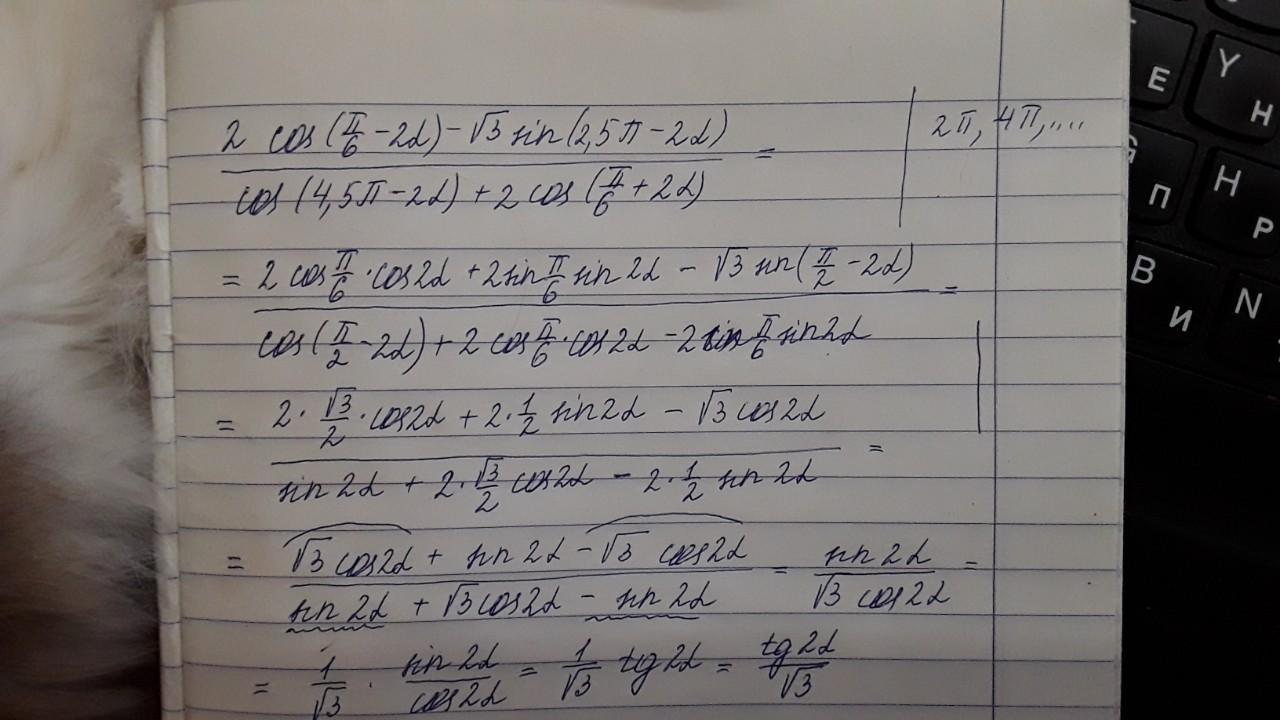 2 cos(π/6 - 2α) - √3 sin(2,5π - 2α) / cos(4,5π - 2α) + 2 cos(π/6 + 2α) =
2π, 4π, ....
= 2 cos π/6 · cos2α + 2 sin π/6 sin 2α - √3 sin(π/2 - 2α) / cos(π/2 - 2α) + 2 cos π/6 · cos2α - 2 sin π/6 sin2α =
= 2 · √3/2 · cos2α + 2 · 1/2 sin2α - √3 cos2α / sin 2α + 2 · √3/2 cos2α - 2 · 1/2 sin 2α =
= √3 cos2α + sin 2α - √3 cos2α / sin 2α + √3 cos2α - sin 2α = sin 2α / √3 cos2α =
= 1/√3 · sin 2α / cos2α = 1/√3 tg 2α = tg 2α / √3
E
Y
Н
G
П
H
Р
B
И
N